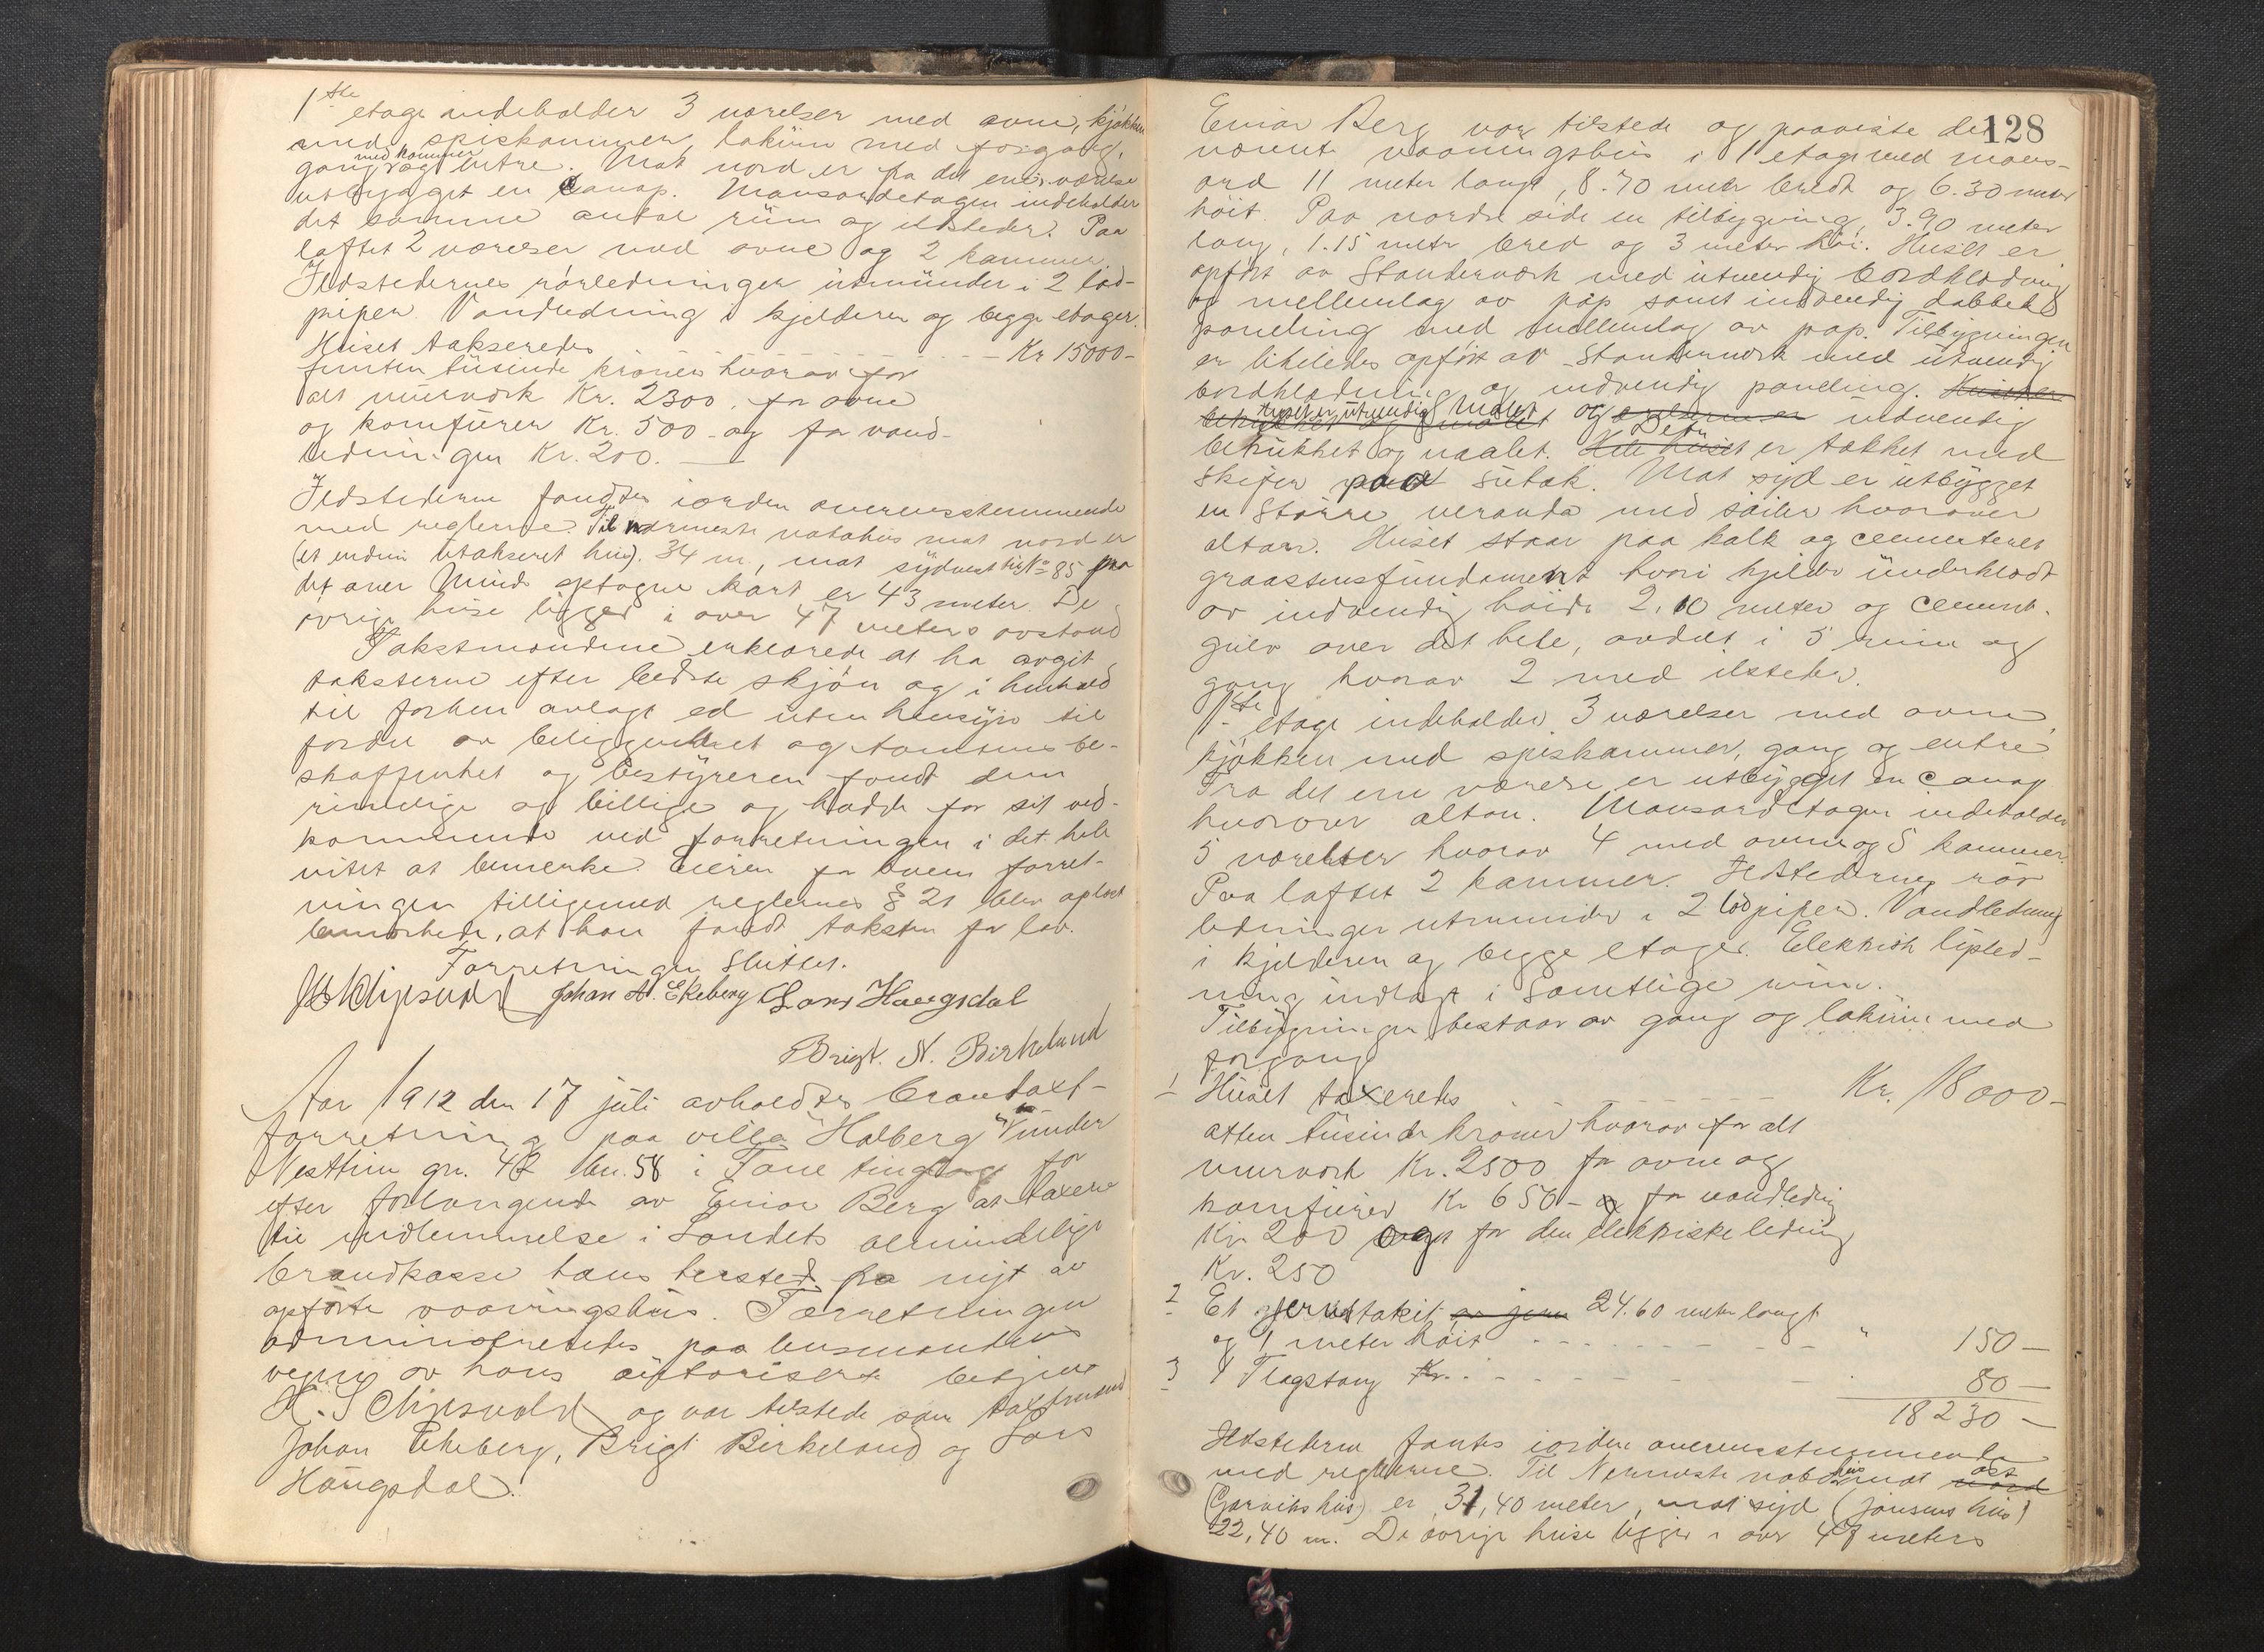 1ste etage indeholder 3 værelser med ovne, kjøkken
med spiskammer, lokum med forgang,
gang med kammer og entre. Mot nord er fra det ene værelse
utbygget en Canap. Mansardetagen indeholder
det samme antal rum og ildsteder. Paa
loftet 2 værelser med ovne og 2 kammer.
Ildstedernes rørledninger utmunder i 2 lod-
piper. Vandledning i kjelderen og begge etager.
Huset takseredes - - - - - Kr 15000-
femten tusinde kroner hvorav for
alt murverk Kr. 2300. for ovne
og komfurer Kr. 500 - og for vand-
ledningen Kr. 200. -
Ildstederne fandtes iorden overensstemmende
med reglerne. Til nærmeste nabohus mot nord er
(et endnu utakseret hus) 34 m, mot sydvest hus No 85 paa
det over Minde optagne kart er 43 meter. De
øvrige huse ligger i over 47 meters avstand
Takstmændene erklærede at ha avgit
taksterne efter bedste skjøn og i henhold
til forhen avlagt ed uten hensyn til
fordel av beliggenhet og tomtens be-
skaffenhet og bestyreren fandt dem
rimelige og billige og hadde for sit ved-
kommende ved forretningen i det hele
intet at bemerke. Eieren for hvem forret-
ningen tilligemed reglernes § 21 blev oplæst
bemerkede, at han fandt taksten for lav.
Forretningen sluttet.
Johan A. Ekeberg Lars Haugsdal
Brigt. N. Birkeland
Aar 1912 den 17 juli avholdtes brandtaxt-
forretning paa villa "Halberg" under
Nesttun gn. 42 bn. 58 i Fane tinglag for
efter forlangende av Einar Berg at taxere
til indlemmelse i Landets almindelige
brandkasse hans hersteds fra nyt av
opførte vaaningshus. Forretningen
administreredes paa lensmandens
vegne av hans autoriserte betjent
og var tilstede som taxtmænd
Johan Ekeberg, Brigt Birkeland og Lars
Haugsdal.
128
Einar Berg var tilstede og paaviste det
nævnte vaaningshus i 1 etage med mans-
ard 11 meter langt, 8.70 meter bredt og 6.30 meter
høit. Paa nordre side en tilbygning, 3.90 meter
lang, 1.15 meter bred og 3 meter høi. Huset er
opført av Standerverk med utvendig bordklædning
og mellemlag av pap samt indvendig dobbelt
paneling med mellemlag av pap. Tilbygningen
er likeledes opført av Standerverk med utvendig
bordklædning og indvendig paneling.
Huset er utvendig malet og indvendig
betrukket og malet. Det er tækket med
skifer paa sutak. Mot syd er utbygget
en større veranda med søiler hvorover
altan. Huset staar paa kalk og cementeret
graastensfundament hvori kjelder underklædt
av indvendig høide 2.10 meter og cement-
gulv over det hele, avdelt i 5 rum og
gang hvorav 2 med ilsteder.
1ste etage indeholder 3 værelser med ovne,
kjøkken med spiskammer, gang og entre
Fra det ene værelse er utbygget en Canap
hvorover altan. Mansardetagen indeholder
5 værelser hvorav 4 med ovne og 5 kammer.
Paa loftet 2 kammer. Ildstedernes rør
ledninger utmunder i 2 lodpiper. Vandledning
i kjelderen og begge etager. Elektrisk lysled-
ning indlagt i samtlige rum.
Tilbygningen bestaar av gang og lokum med
forgang
1 Huset taxeredes - - - - Kr. 18000-
atten tusinde kroner hvorav for alt
murverk Kr. 2500 for ovne og
komfurer Kr 650 - for vandledning
Kr 200 og for den elektriske ledning
Kr. 250
2 Et jernstakit av jern 24.60 meter langt
og 1 meter høit - - - - " 150 -
3 1 Flagstang Kr. - - - - 80 -
18230 -
Ildstederne fantes iorden overensstemmende
med reglerne. Til Nærmeste nabohus mot øst nord
(Garviks hus) er 31,40 meter, mot syd (Jansens hus)
22,40 m. De øvrige huse ligger i over 47 meters